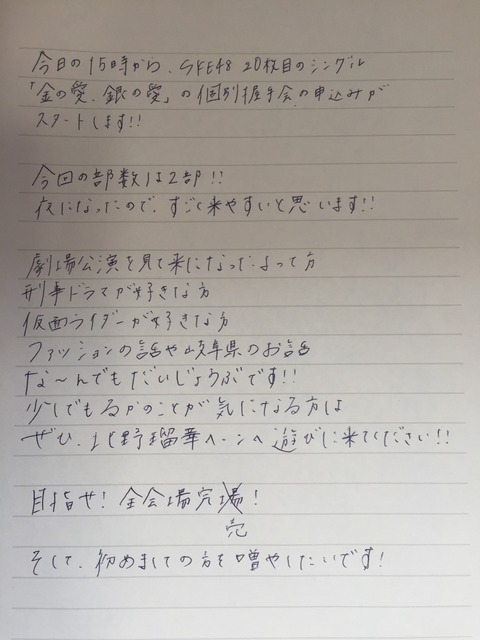 今日の15時から、SKE48 20枚目のシングル
「金の愛、銀の愛」の個別握手会の申込みが
スタートします!!
今回の部数は2部!!
夜になったので、すごく来やすいと思います!!
劇場公演を見て来になったよって方
刑事ドラマが好きな方
仮面ライダーが好きな方
ファッションの話や岐阜県のお話
な〜んでもだいじょうぶです!!
少しでもるかのことが気になる方は
ぜひ、北野瑠華へーンへ遊びに来てください!!
目指せ!全会場完場!
売
そして、初めましての方を増やしたいです!